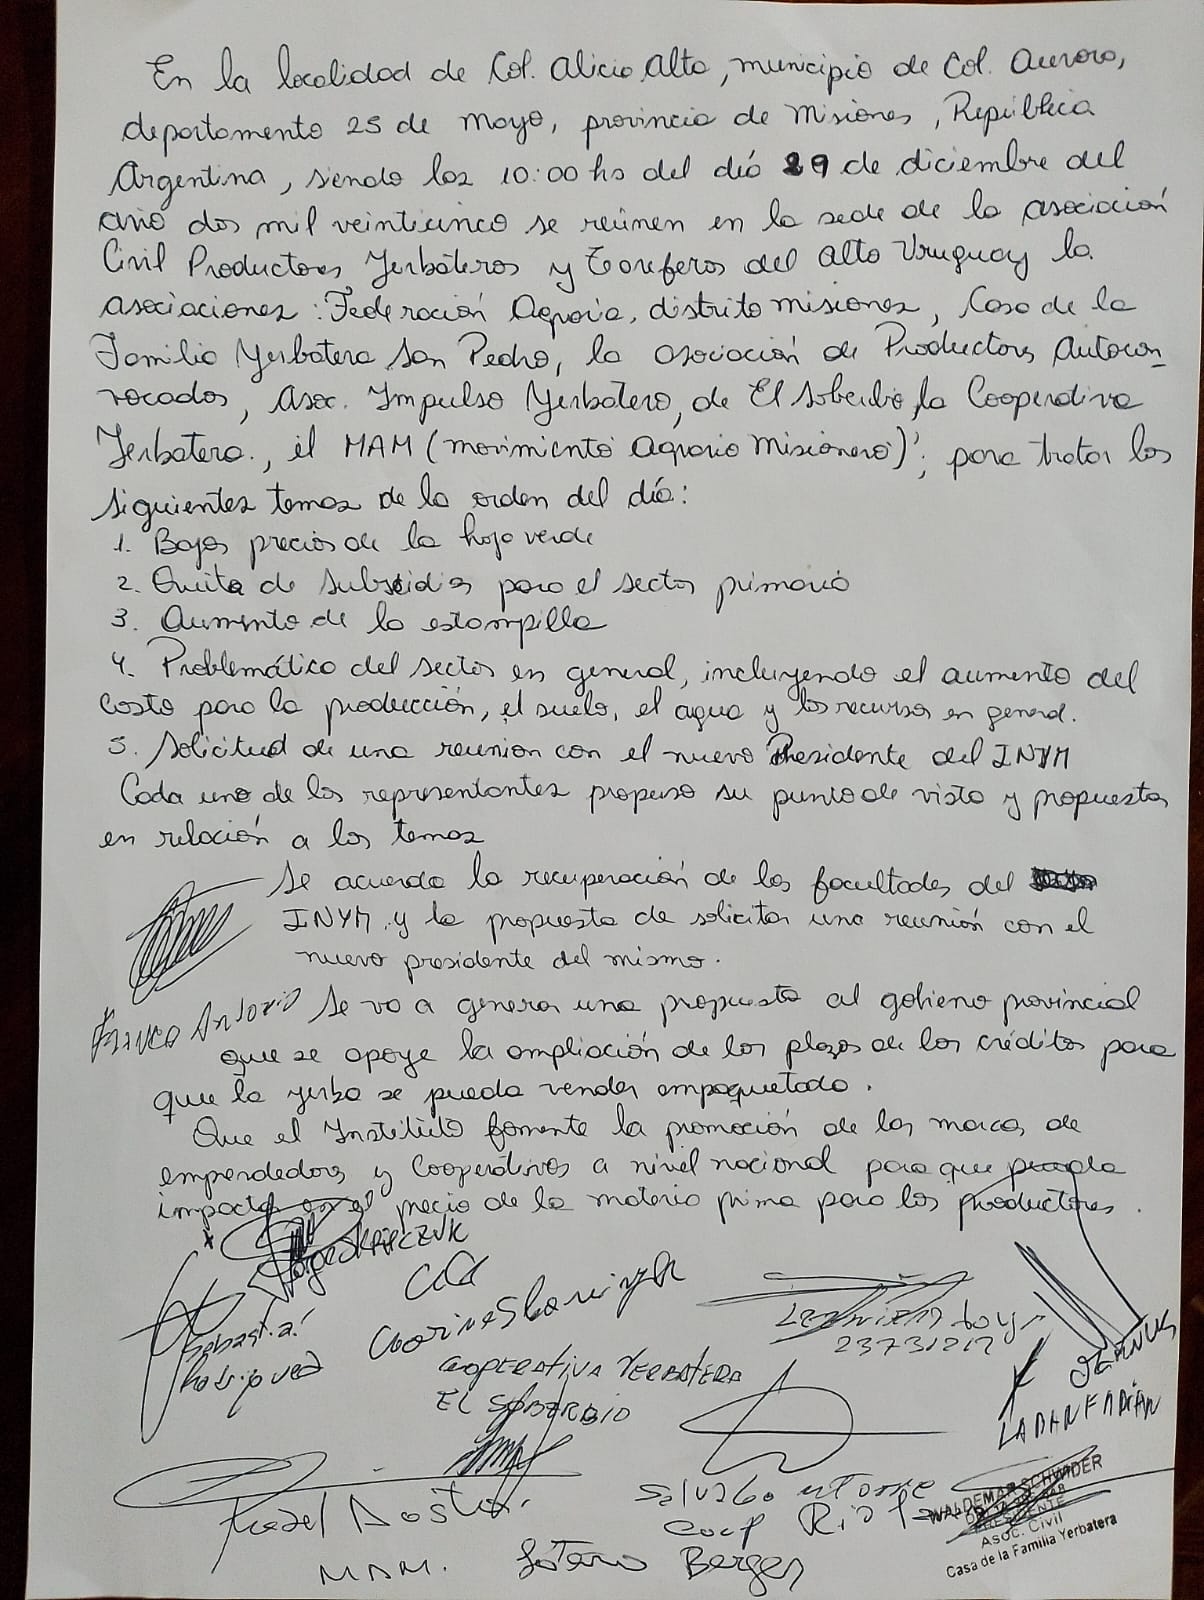 En la localidad de Col. Alicia Alta, municipio de Col. Aurora,
departamento 25 de Mayo, provincia de Misiones, República
Argentina, siendo las 10:00 hs del día 29 de diciembre del
año dos mil veinticinco se reúnen en la sede de la asociación
Civil Productores Yerbateros y Tareferos del Alto Uruguay la
asociaciones: Federación Agraria, distrito misiones, Casa de la
Familia Yerbatera San Pedro, la asociación de Productores Autocon-
vocados, Asoc. Impulso Yerbatero, de El Soberbio, la Cooperativa
Yerbatera., el MAM (movimiento agrario Misionero); para tratar los
siguientes temas de la orden del día:
1. Bajos precios de la hoja verde
2. Quita de subsidios para el sector primario
3. Aumento de la estampilla
4. Problemática del sector en general, incluyendo el aumento del
costo para la producción, el suelo, el agua y los recursos en general.
5. Solicitud de una reunion con el nuevo Presidente del INYM
Cada uno de los representantes propuso su punto de vista y propuestas
en relación a los temas
Se acuerda la recuperación de las facultades del
INYM y la propuesta de solicitar una reunión con el
nuevo presidente del mismo.
Franco Antonio
Se va a generar una propuesta al gobierno provincial
que se apoye la ampliación de los plazos de los créditos para
que la yerba se pueda vender empaquetada.
Que el Instituto fomente la promoción de las marcas de
emprendedores y Cooperativas a nivel nacional para que pueda
impactar en el precio de la materia prima para los productores.
COOPERATIVA YERBATERA
EL SOBERBIO
23731217
LABAN FABIÁN
MAM.
Coop
WALDEMAR SCHWIDER
PRESIDENTE
Asoc. Civil
Casa de la Familia Yerbatera